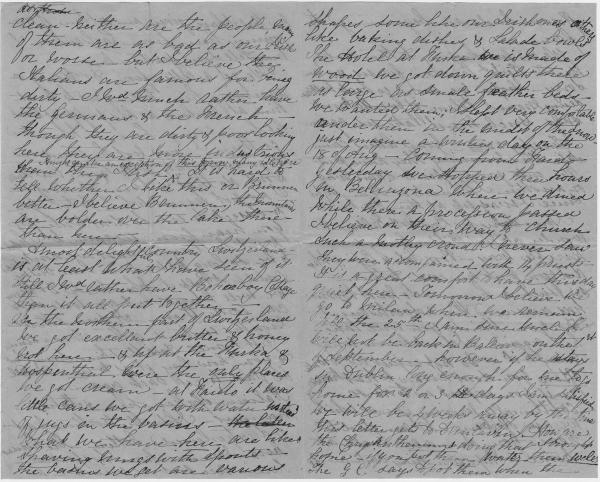 clean neither are the people many
of them are as bad as our Irish
or worse but I believe the
Italians are famous for being
dirty – I wd much rather have
the Germans & the French –
though they are dirty & poor looking
here they are very industrious
from It is hard to
tell whether I like this or Brunnen
better – I believe Brunnen, the mountains
are bolder over the lake there
than here –
A most delightful Country Switzerland
is at least what I have seen of it
still I wd rather have
than it all put together –
In the Northern part of Switzerland
we got excellent butter & honey
not here – & up at the &
Hospenthal were the only places
we got cream – at Faido it was
little cans we got with water instead
of jugs in the basins –
What we have here are like
shaving mugs with spouts –
the basins we get are various
shapes, some like our Irish ones others
like baking dishes & Salade Bowls
The Hotel at is made of
Wood we got down quilts there
as large as small feather beds
we wanted them, I slept very comfortable
under them in the midst of the snow
just imagine a winters day on the
18 of Aug – Coming from
yesterday we stopped three hours
in Bellinzona where we dined
While there a procession passed
I believe on their way to church
Such a crowd I never saw
they were accompanied with by priests –
It is a great comfort to have this day
quiet here – Tomorrow I believe we
go to Milan where we remain
till the 25th I am sure we
will just be back in on the 1st
of September – however if he stays
in Dublin long enough for me to go
home for 2 or 3 days I am satisfied
we will be 4 weeks away by the time
this letter gets to How are
the Chrysanthemums doing that I
hope – if you both water them well
The G. C. days & pot them when the